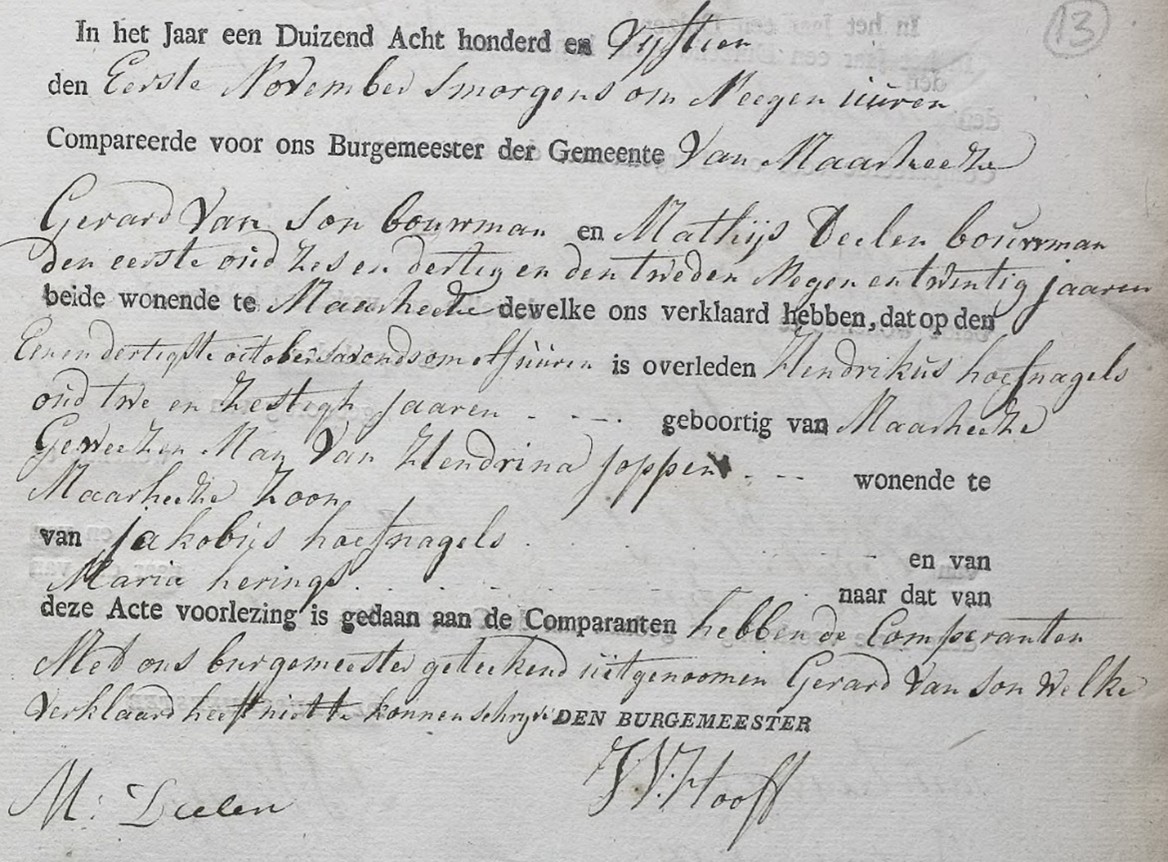 13
In het Jaar een Duizend Acht honderd en Vyftien
den Eerste November smorgens om Neegen uuren
Compareerde voor ons Burgemeester der Gemeente Van Maarheeze
Gerard Van Son bouwman en Mathijs Deelen bouwman
den eerste oud Zes en dertig en den tweden Negen en twintig jaaren
beide wonende te Maarheeze dewelke ons verklaard hebben, dat op den
Een en dertigste october savonds om elf uuren is overleden Hendrikus hoefnagels
oud twe en Zestigh jaaren - - - . geboortig van Maarheeze
Geweezen Man Van Hendrina Joppen . - - wonende te
Maarheeze Zoon
van Jakobus hoefnagels en van
Maria herings naar dat van
deze Acte voorlezing is gedaan aan de Comparanten hebben de Comparanten
Met ons burgemeester geteekend uitgenoomen Gerard Van Son Welke
Verklaard heeft niet te konnen schryve DEN BURGEMEESTER
M: Deelen
J V Hooff